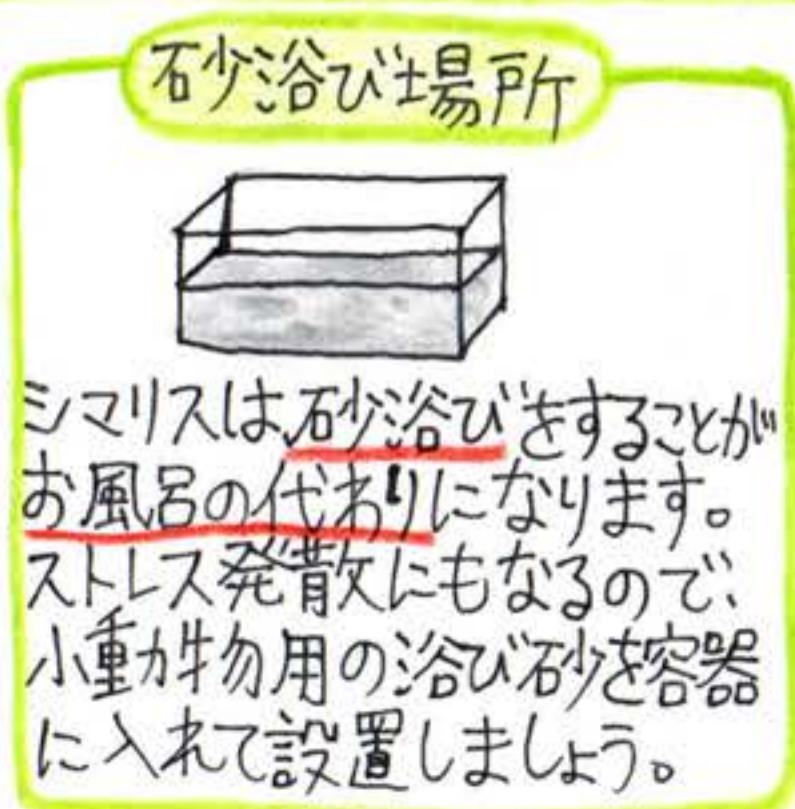 砂浴び場所
シマリスは砂浴びをすることが
お風呂の代わりになります。
ストレス発散にもなるので、
小動物用の浴び砂を容器
に入れて設置しましょう。